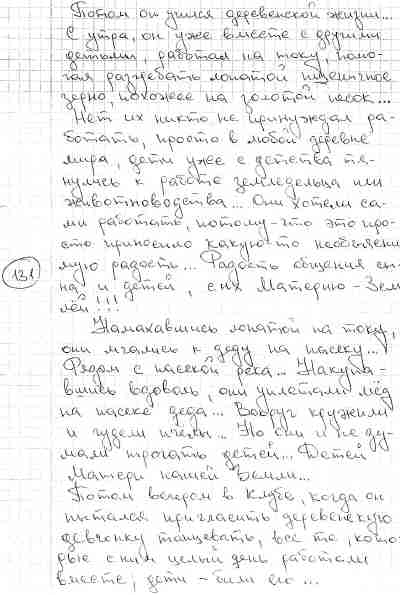 Потом он учился деревенской жизни...
С утра, он уже вместе с другими
детьми, работал на току, помо-
гая разгребать лопатой пшеничное
зерно, похожее на золотой песок...
Нет их никто не принуждал ра-
ботать, просто в любой деревне
мира, дети уже с детства тя-
нулись к работе земледельца или
животноводства... Они хотели са-
ми работать, потому-что это про-
сто приносило какую-то необъясни-
мую радость... Радость общения сы-
131
на и детей, с их Матерью-Зем
лёй!!!
Намахавшись лопатой на току,
они мчались к деду на пасеку...
Рядом с пасекой река... Накупа-
вшись вдоволь, они уплетали мёд
на пасеке деда... Вокруг кружили
и гудели пчёлы... Но они и не ду-
мали трогать детей... Детей
Матери нашей Земли...
Потом вечером в Клубе, когда он
пытался пригласить деревенскую
девчонку танцевать, все те, кото-
рые с ним целый день работали
вместе, дети - били его...